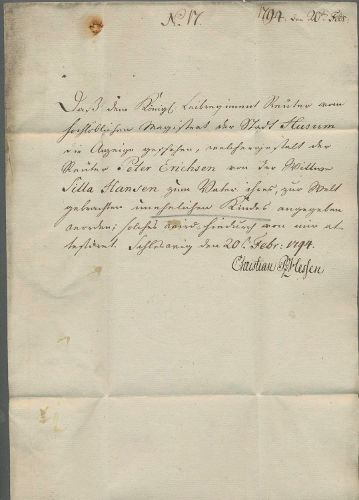 N. 17.
1794. den 20t. Febr.
Daß dem Königl. Leibregiment Reuter vom
hochlöblichen Magistrat der Stadt Husum
die Anzeige geschehen, welchergestalt der
Reuter Peter Erichsen von der Wittwe
Silla Hansen zum Vater ihres, zur Welt
gebrachten unehelichen Kindes angegeben
worden; solches wird hiedurch von mir at-
testiret. Schleswig den 20t. Febr: 1794.
Christian Hessen